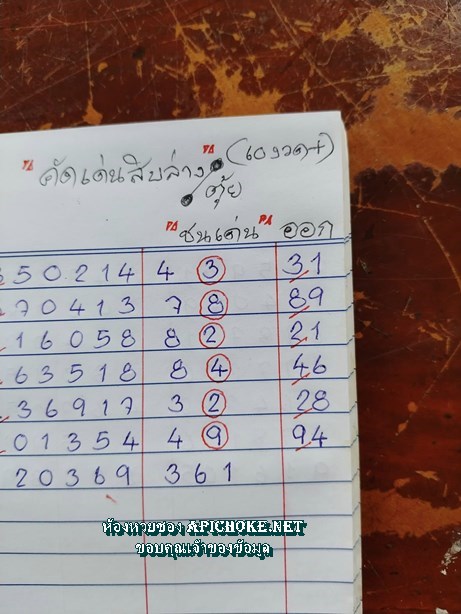 คัดเด่นสิบล่าง (เองวด+)
ตุ้ย
ชนเด่น ออก
50214 43 31
70413 78 89
16058 82 21
63518 84 46
36917 32 28
01354 49 94
20369 361
ห้องหวยซอง APICHOKE.NET
ขอบคุณเจ้าของข้อมูล